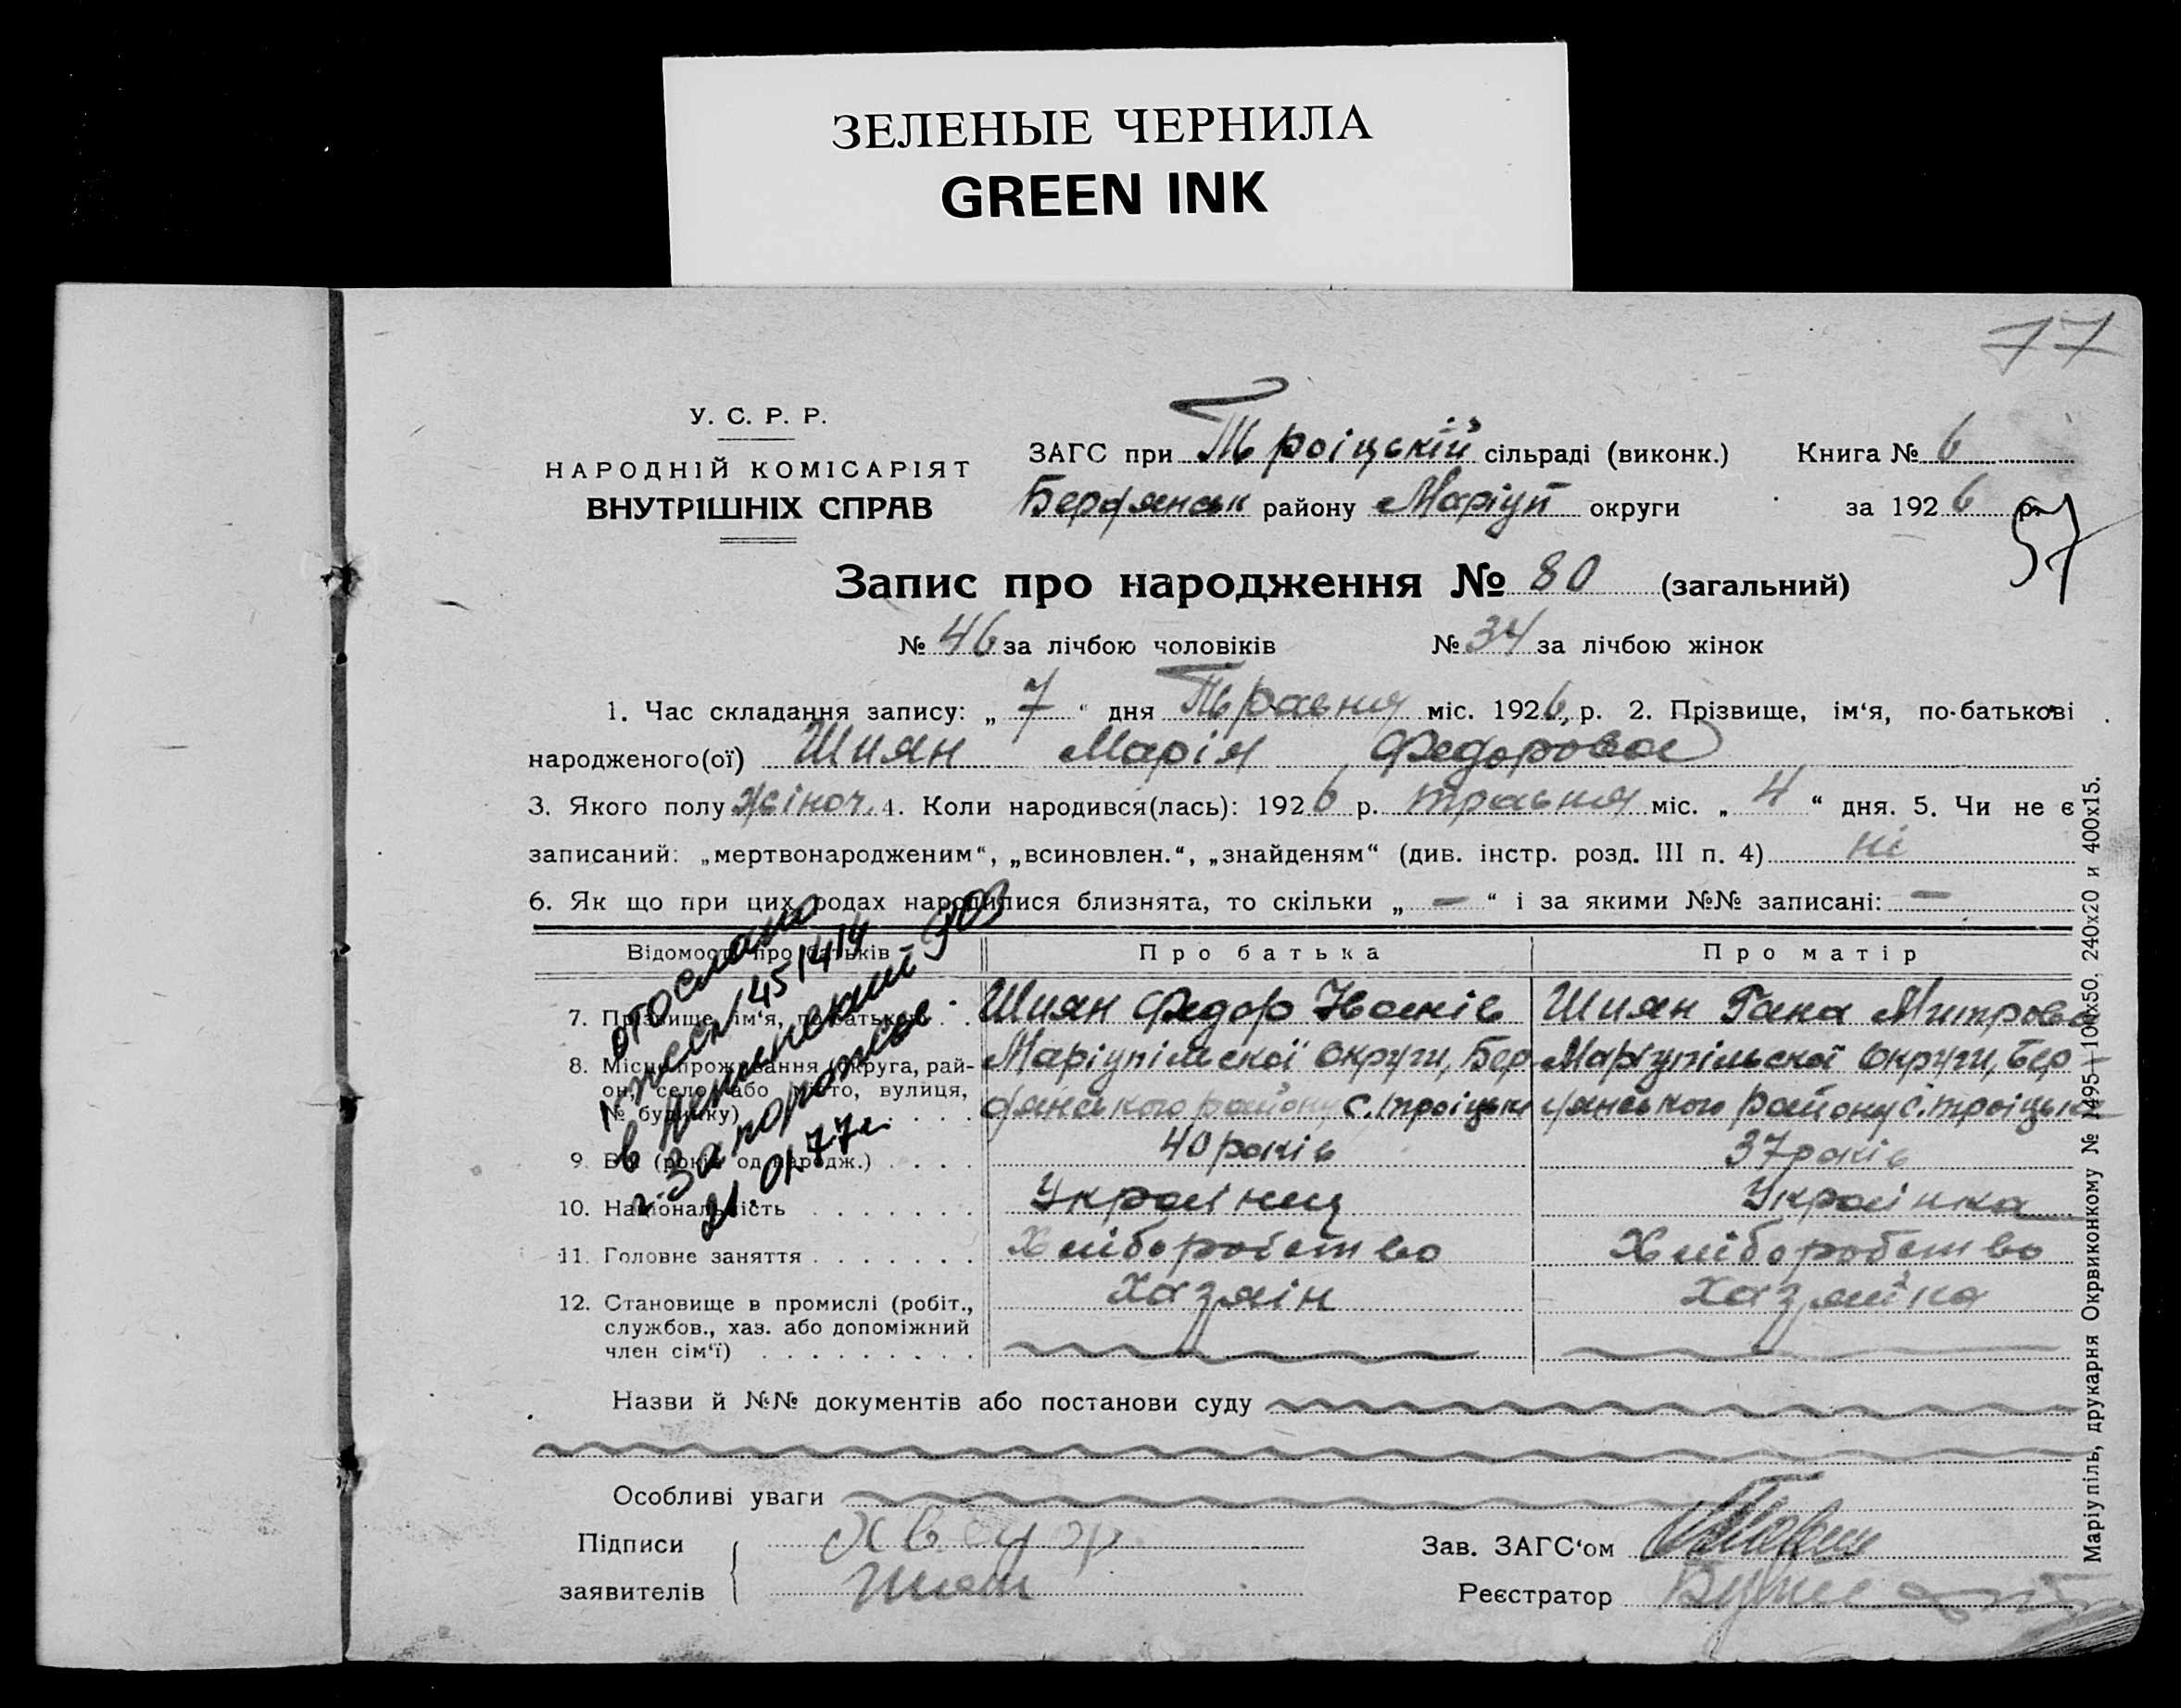 ЗЕЛЕНЫЕ ЧЕРНИЛА
GREEN INK
77
У. С. Р. Р.
НАРОДНІЙ КОМІСАРІЯТ
ВНУТРІШНІХ СПРАВ
ЗАГС при Троіцскій сільраді (виконк.) Книга № 6
Бердянськ району Маріуп округи за 1926 р.
57
Запис про народження № 80 (загальний)
№ 46 за лічбою чоловіків № 34 за лічбою жінок
1. Час складання запису: „ 7 “ дня Травня міс. 1926, р. 2. Прізвище, ім‘я, по-батькові
народженого(ої) Шиян Марія Федорова
3. Якого полу жіноч. 4. Коли народився(лась): 1926 р. травня міс. „ 4 “ дня. 5. Чи не є
записаний: „мертвонародженим“, „всиновлен.“, „знайденям“ (див. інстр. розд. III п. 4) ні
6. Як що при цих родах народилися близнята, то скільки „ — “ і за якими №№ записані: —
Відомості про батьків Про батька Про матір
7. Прізвище, ім‘я, по-батькові . . Шиян Федор Іванів Шиян Гана Митрова
8. Місце прожування (округа, рай- Маріупільскої округи, Бер Маріупільскої округи, Бер
он, село або місто, вулиця, дянського району с. троіцьке дянського району с. троіцьке
№ будинку)
9. Вік (років од народж.) . . . . 40 років 37 років
10. Національність . . . . . . . Украінец Украінка
11. Головне заняття . . . . . . . Хліборобство Хліборобство
12. Становище в промислі (робіт., Хазяін Хазяйка
службов., хаз. або допоміжний
член сім‘ї) . . . . . . . . .
отослано
в Ленинский РОЗ
г. Запорожье
21. 01. 77 г.
Назви й №№ документів або постанови суду
Особливі уваги
Підписи Хведор Зав. ЗАГС‘ом
заявителів Шиян Реєстратор
Маріупіль, друкарня Окрвиконкому № 1495—100х50. 240х20 и 400х15.